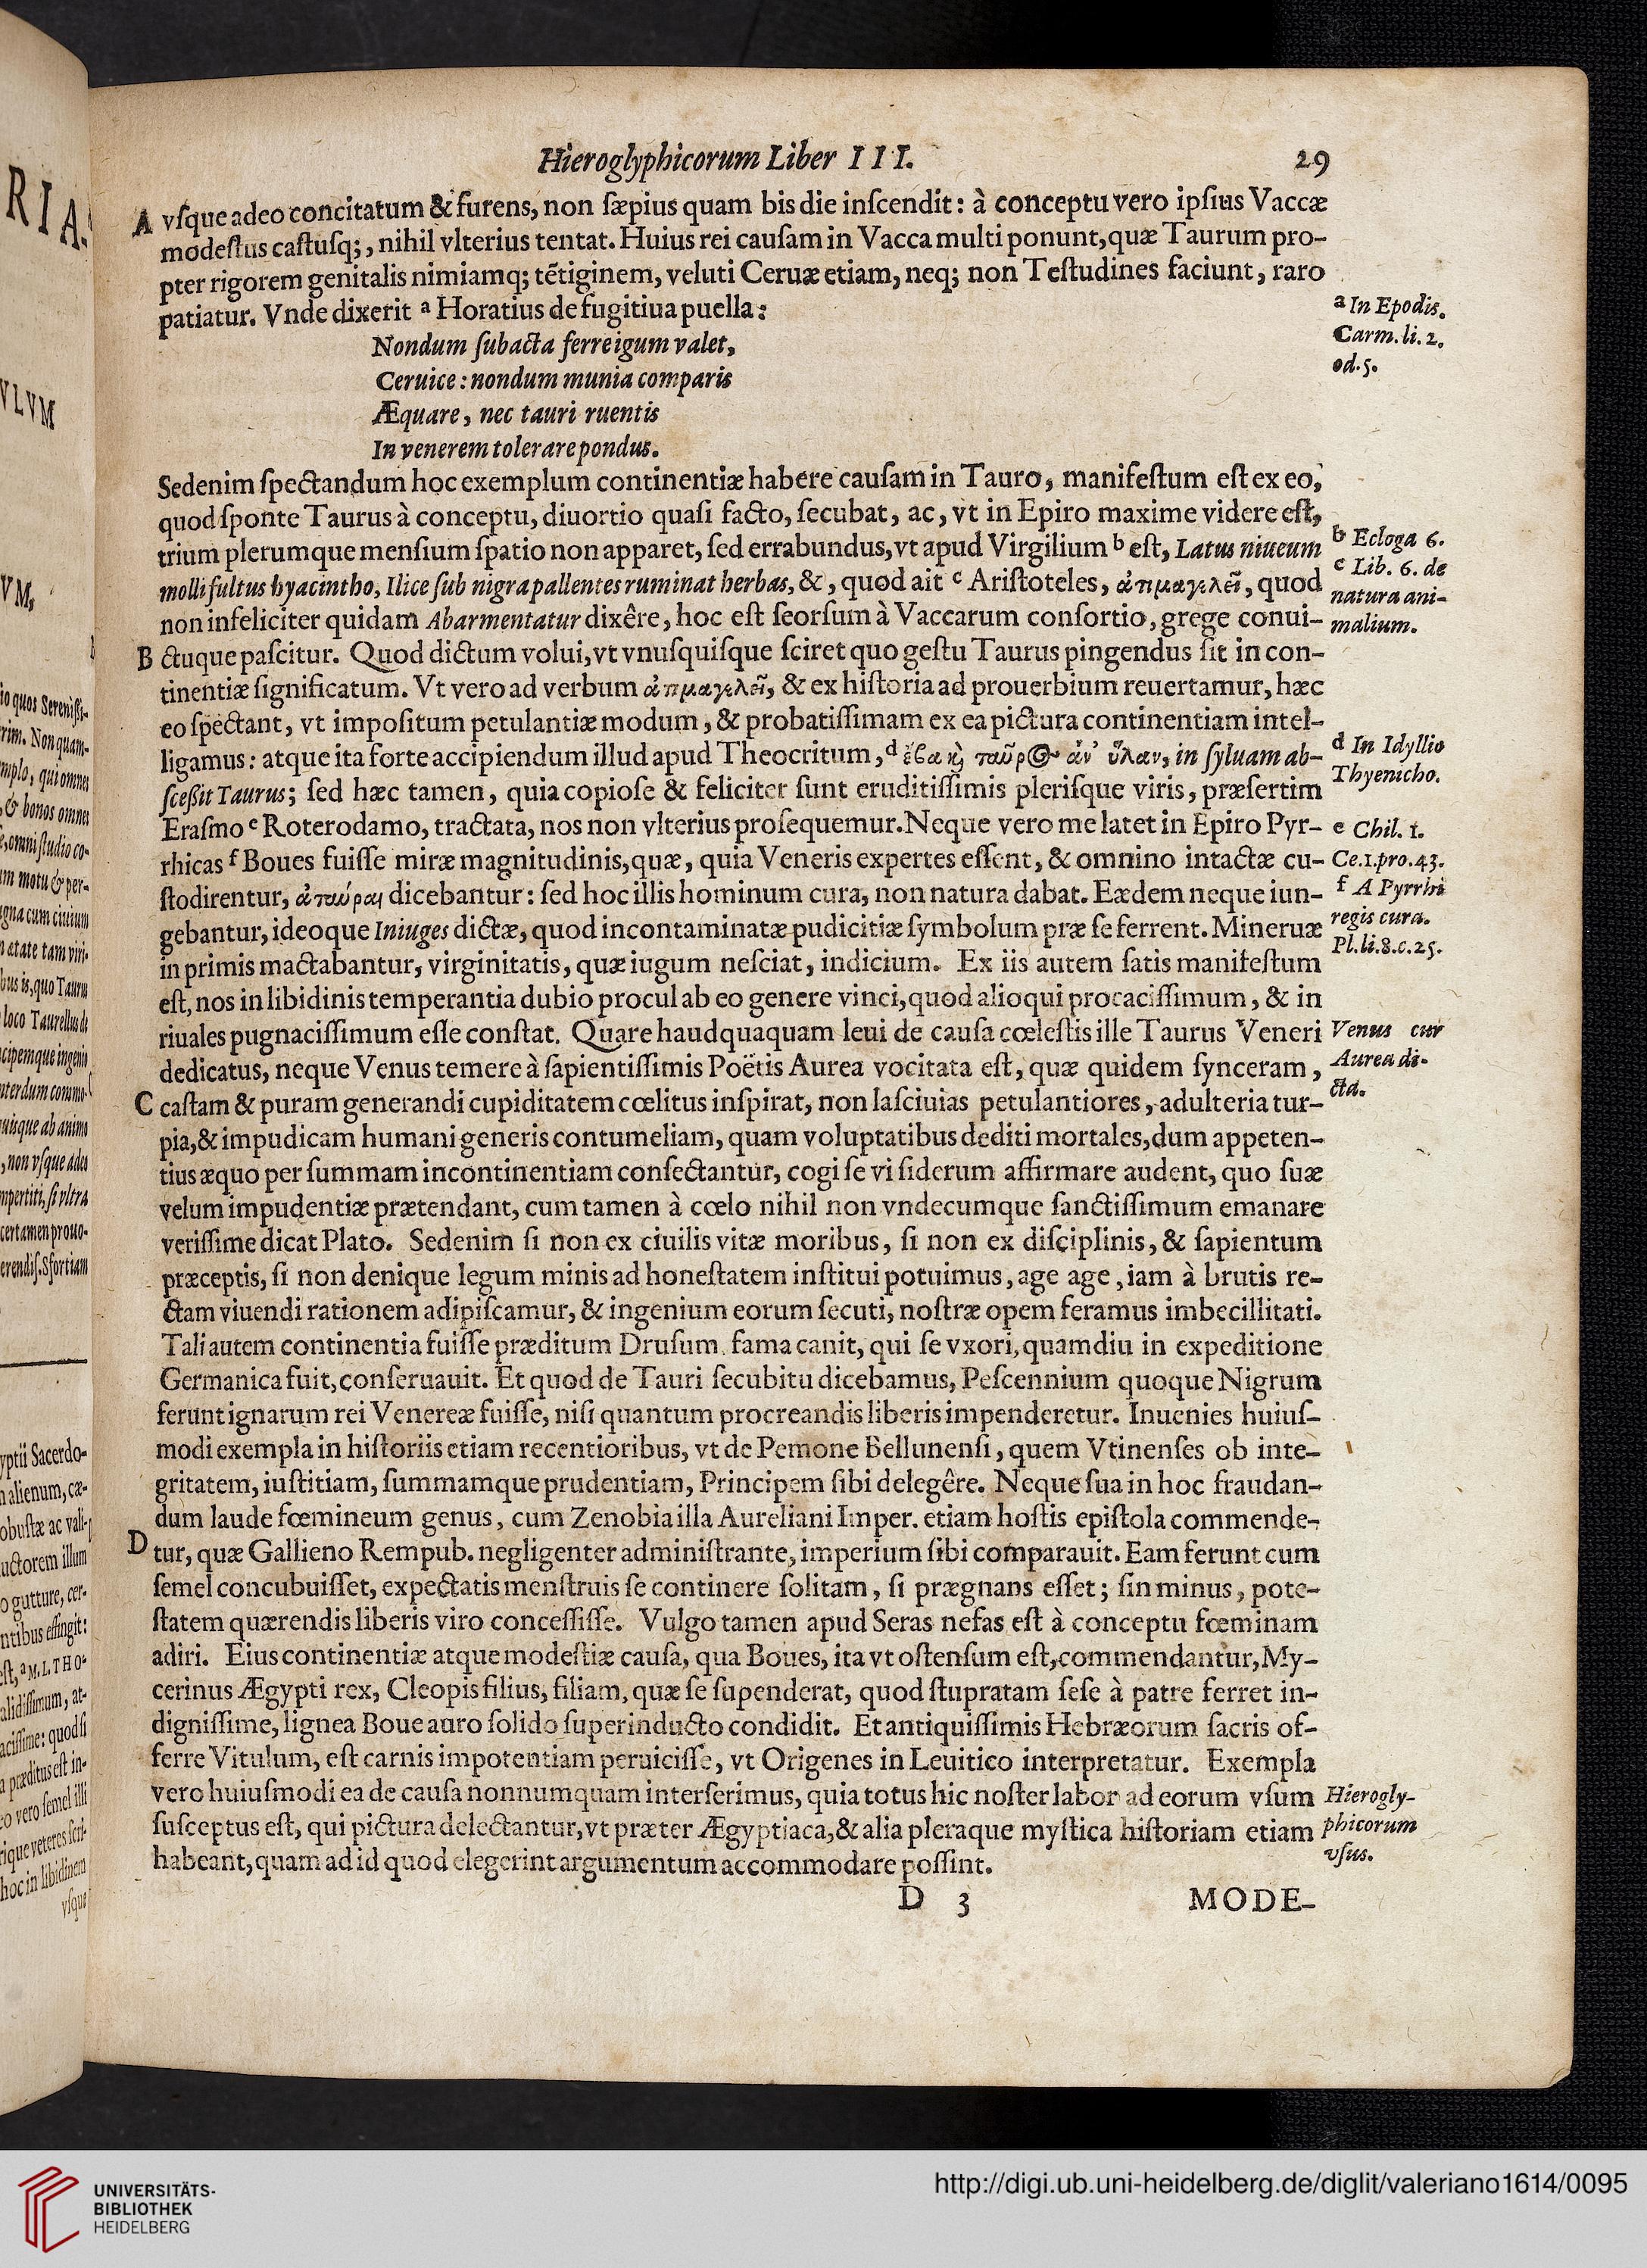 Hieroglyphicorum Liber III. 29
A vſque adeo concitatum & furens, non ſæpius quam bis die inſcendit: à conceptu vero ipſius Vaccæ
modeſtus caſtuſq;, nihil vlterius tentat. Huius rei cauſam in Vacca multi ponunt, quæ Taurum pro-
pter rigorem genitalis nimiamq; tẽtiginem, veluti Ceruæ etiam, neq; non Teſtudines faciunt, raro
patiatur. Vnde dixerit a Horatius de fugitiua puella:
a In Epodis.
Carm. li. 2.
od. 5.
Nondum ſubacta ferre igum valet,
Ceruice: nondum munia comparis
Æquare, nec tauri ruentis
In venerem tolerare pondus.
Sedenim ſpectandum hoc exemplum continentiæ habere cauſam in Tauro, manifeſtum eſt ex eo,
quod ſponte Taurus à conceptu, diuortio quaſi facto, ſecubat, ac, vt in Epiro maxime videre eſt,
trium plerumque menſium ſpatio non apparet, ſed errabundus, vt apud Virgilium b eſt, Latus niueum
b Ecloga 6.
molli fultus hyacintho, Ilice ſub nigra pallentes ruminat herbas, &, quod ait c Ariſtoteles, ἀπιμαγελεῖ, quod
c Lib. 6. de
natura ani-
non infeliciter quidam Abarmentatur dixêre, hoc eſt ſeorſum à Vaccarum conſortio, grege conui-
malium.
B ctuque paſcitur. Quod dictum volui, vt vnuſquiſque ſciret quo geſtu Taurus pingendus ſit in con-
tinentiæ ſignificatum. Vt vero ad verbum ἀπιμαγελεῖ, & ex hiſtoria ad prouerbium reuertamur, hæc
eo ſpectant, vt impoſitum petulantiæ modum, & probatiſſimam ex ea pictura continentiam intel-
ligamus: atque ita forte accipiendum illud apud Theocritum, d ἔβα καὶ ταῦρος ἀν’ ὕλαν, in ſyluam ab-
d In Idyllio
Thyenicho.
ſceßit Taurus; ſed hæc tamen, quia copioſe & feliciter ſunt eruditiſſimis pleriſque viris, præſertim
Eraſmo e Roterodamo, tractata, nos non vlterius proſequemur. Neque vero me latet in Epiro Pyr-
e Chil. 1.
rhicas f Boues fuiſſe miræ magnitudinis, quæ, quia Veneris expertes eſſent, & omnino intactæ cu-
Ce. 1. pro. 43.
ſtodirentur, ἀταύραι dicebantur: ſed hoc illis hominum cura, non natura dabat. Eædem neque iun-
f A Pyrrhi
gebantur, ideoque Iniuges dictæ, quod incontaminatæ pudicitiæ ſymbolum præ ſe ferrent. Mineruæ
regis cura.
Pl. li. 8. c. 25.
in primis mactabantur, virginitatis, quæ iugum neſciat, indicium. Ex iis autem ſatis manifeſtum
eſt, nos in libidinis temperantia dubio procul ab eo genere vinci, quod alioqui procaciſſimum, & in
riuales pugnaciſſimum eſſe conſtat. Quare haudquaquam leui de cauſa cœleſtis ille Taurus Veneri
Venus cur
dedicatus, neque Venus temere à ſapientiſſimis Poëtis Aurea vocitata eſt, quæ quidem ſynceram,
Aurea di-
cta.
C caſtam & puram generandi cupiditatem cœlitus inſpirat, non laſciuias petulantiores, adulteria tur-
pia, & impudicam humani generis contumeliam, quam voluptatibus dediti mortales, dum appeten-
tius æquo per ſummam incontinentiam conſectantur, cogi ſe vi ſiderum affirmare audent, quo ſuæ
velum impudentiæ prætendant, cum tamen à cœlo nihil non vndecumque ſanctiſſimum emanare
veriſſime dicat Plato. Sedenim ſi non ex ciuilis vitæ moribus, ſi non ex diſciplinis, & ſapientum
præceptis, ſi non denique legum minis ad honeſtatem inſtitui potuimus, age age, iam à brutis re-
ctam viuendi rationem adipiſcamur, & ingenium eorum ſecuti, noſtræ opem feramus imbecillitati.
Tali autem continentia fuiſſe præditum Druſum fama canit, qui ſe vxori, quamdiu in expeditione
Germanica fuit, conſeruauit. Et quod de Tauri ſecubitu dicebamus, Peſcennium quoque Nigrum
ferunt ignarum rei Venereæ fuiſſe, niſi quantum procreandis liberis impenderetur. Inuenies huiuſ-
modi exempla in hiſtoriis etiam recentioribus, vt de Pemone Bellunenſi, quem Vtinenſes ob inte-
gritatem, iuſtitiam, ſummamque prudentiam, Principem ſibi delegêre. Neque ſua in hoc fraudan-
dum laude fœmineum genus, cum Zenobia illa Aureliani Imper. etiam hoſtis epiſtola commende-
D tur, quæ Gallieno Rempub. negligenter adminiſtrante, imperium ſibi comparauit. Eam ferunt cum
ſemel concubuiſſet, expectatis menſtruis ſe continere ſolitam, ſi prægnans eſſet; ſin minus, pote-
ſtatem quærendis liberis viro conceſſiſſe. Vulgo tamen apud Seras nefas eſt à conceptu fœminam
adiri. Eius continentiæ atque modeſtiæ cauſa, qua Boues, ita vt oſtenſum eſt, commendantur, My-
cerinus Ægypti rex, Cleopis filius, filiam, quæ ſe ſupenderat, quod ſtupratam ſeſe à patre ferret in-
digniſſime, lignea Boue auro ſolido ſuperinducto condidit. Et antiquiſſimis Hebræorum ſacris of-
ferre Vitulum, eſt carnis impotentiam peruiciſſe, vt Origenes in Leuitico interpretatur. Exempla
vero huiuſmodi ea de cauſa nonnumquam interſerimus, quia totus hic noſter labor ad eorum vſum
Hierogly-
ſuſceptus eſt, qui pictura delectantur, vt præter Ægyptiaca, & alia pleraque myſtica hiſtoriam etiam
phicorum
vſus.
habeant, quam ad id quod elegerint argumentum accommodare poſſint.
D 3 MODE-
RIA.
VLVM
VM,
io quos Sereniſſi-
rim. Non quam-
mplo, qui omnes
& bonos omnes
omni ſtudio co-
im motu & per-
gna cum ciuium
ætate tam viri-
bus is, quo Taurus
loco Taurellus di
cipemque ingenio
nterdum commo-
uisque ab animo
, non vſque adeo
mpertiti, ſi vltra
certamen prouo-
erendiſ. Sfortiam
yptii Sacerdo-
alienum, cæ-
obuſtæ ac vali-
uctorem illum
o gutture, cer-
ntibus effingit:
eſt, a M. L. THO-
alidiſſimum, at-
aciſſime: quod ſi
a præditus eſt in-
co vero ſemel illi
rique veteres ſcri-
hoc in libidinem
vſque
UNIVERSITÄTS-
BIBLIOTHEK
HEIDELBERG
http://digi.ub.uni-heidelberg.de/diglit/valeriano1614/0095